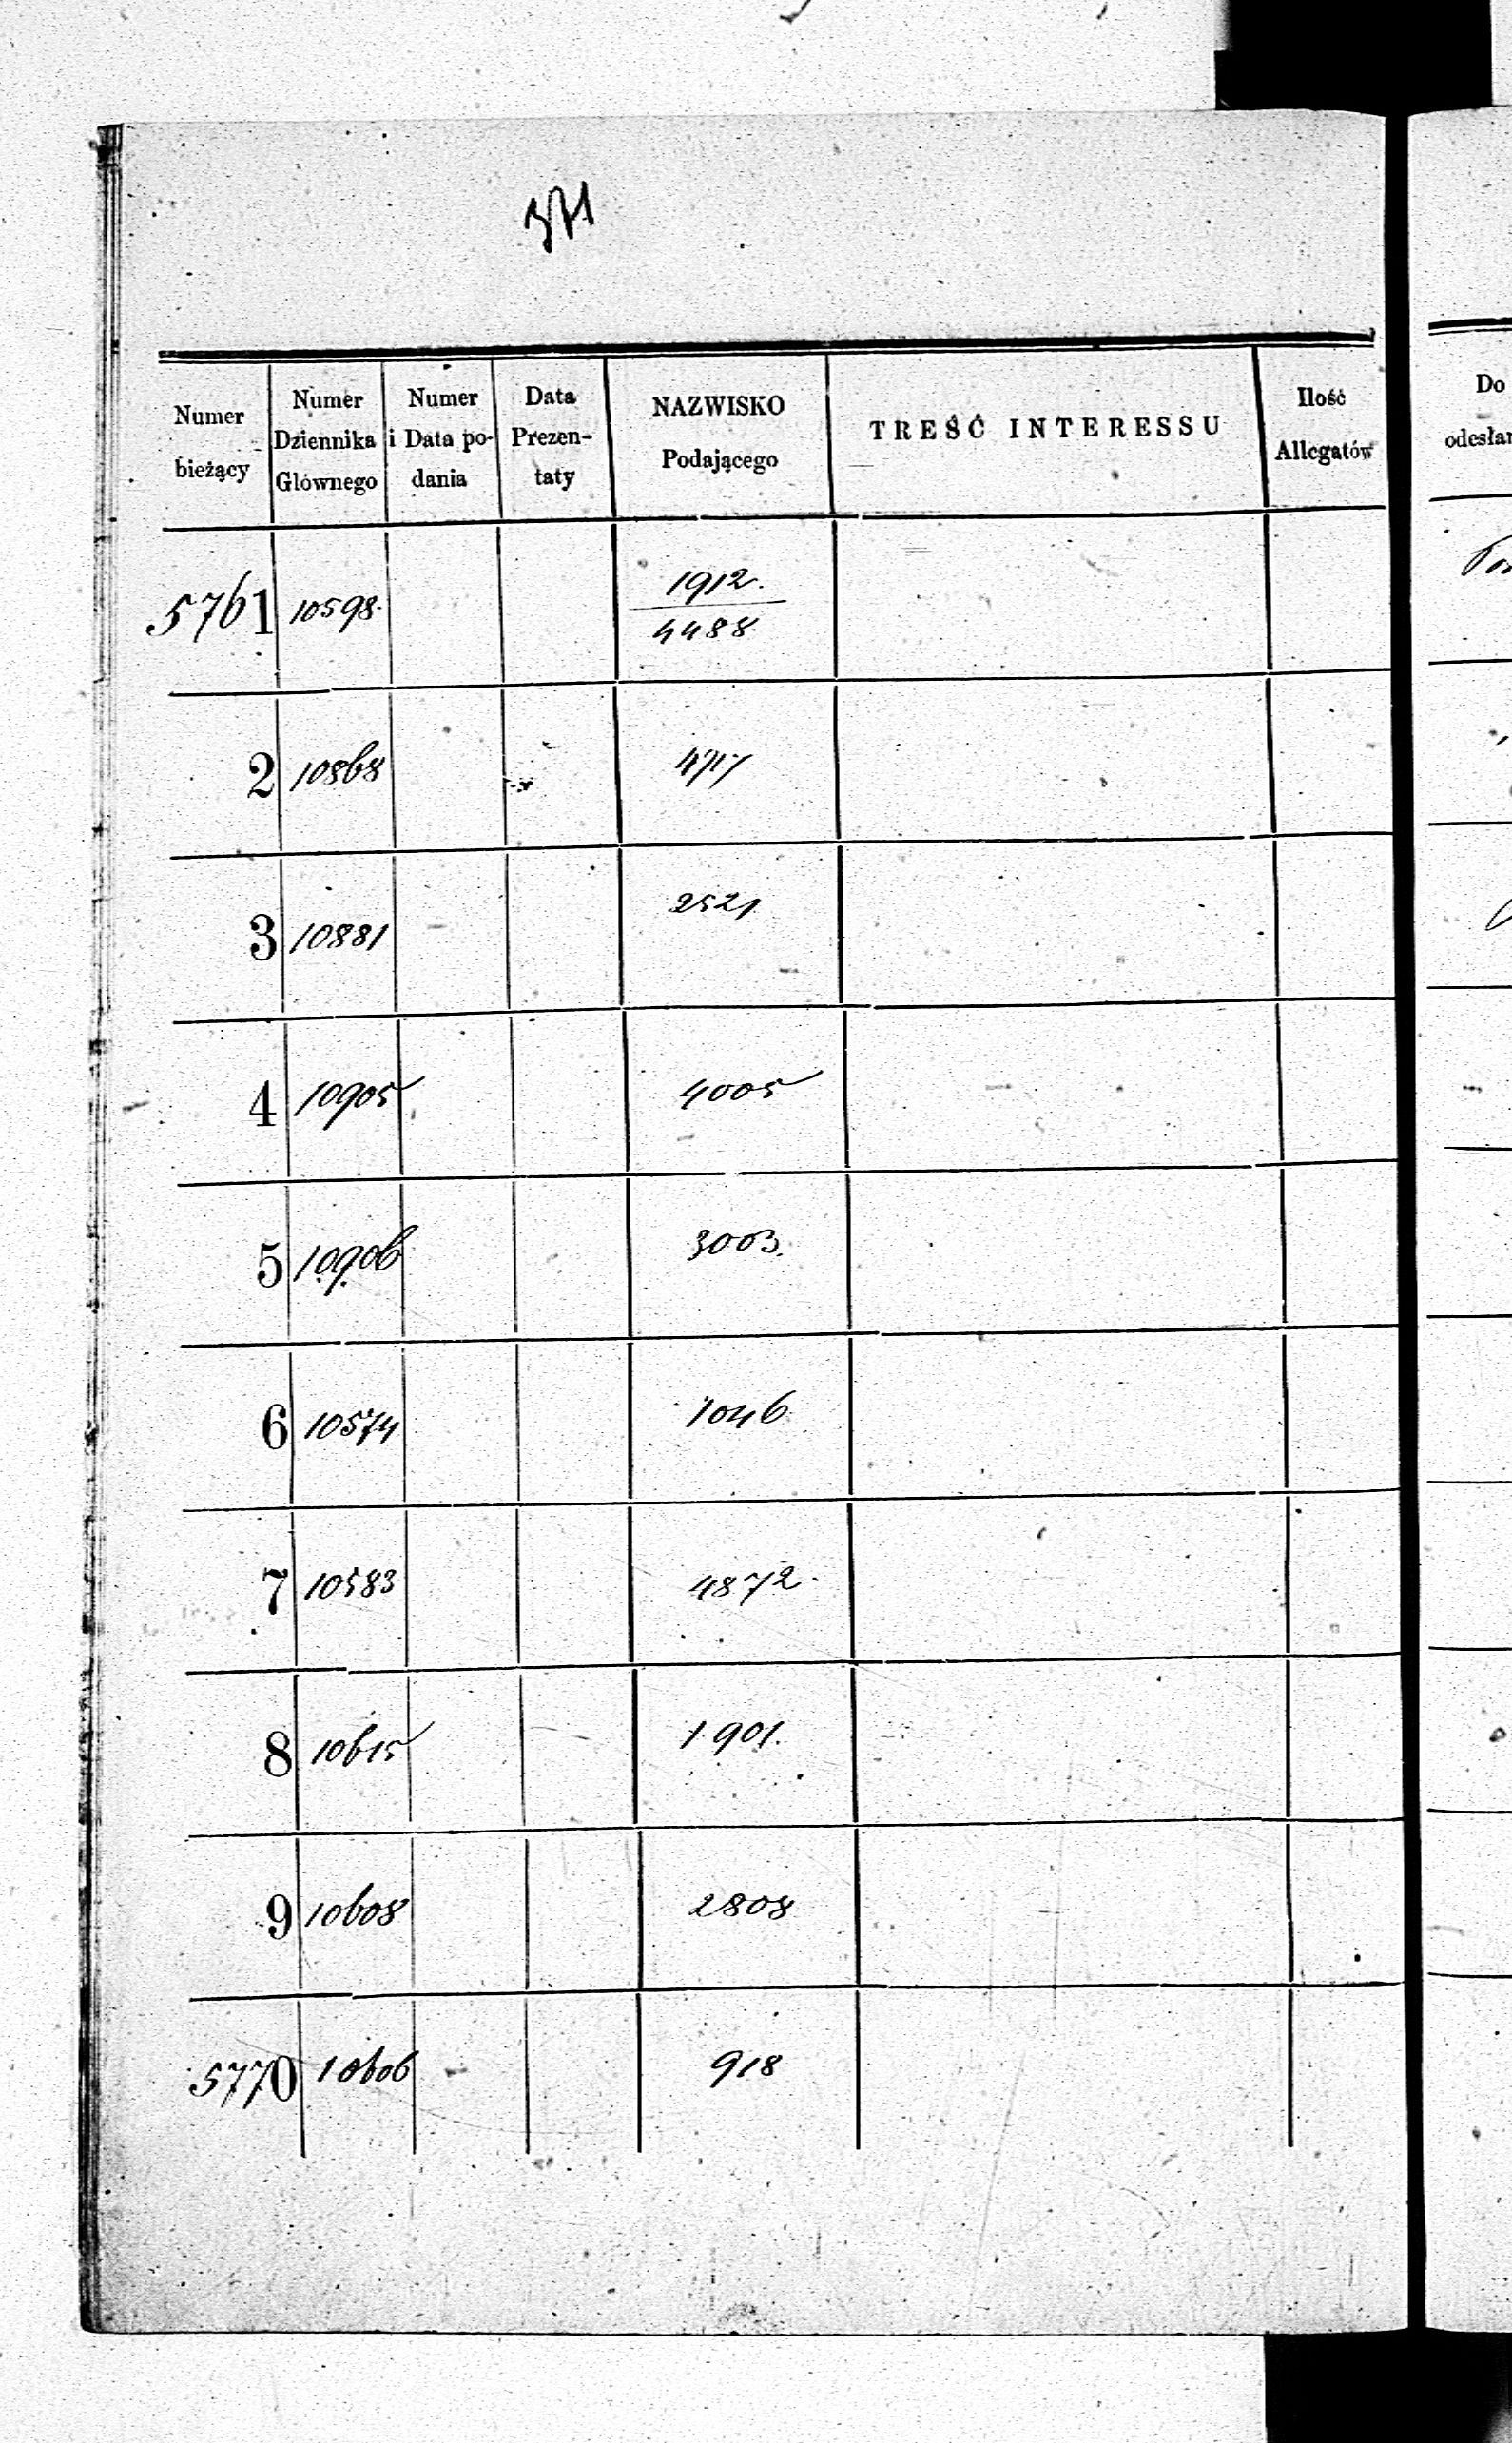 371
Numer bieżący
Numer Dziennika Głównego
Numer i Data podania
Data Prezentaty
NAZWISKO Podającego
TREŚĆ INTERESSU
Ilość Allegatów
Do odesłan
5761 10598. 1912. / 4488.
2 10868 4717
3 10881 2521
4 10905 4005
5 10906 3003.
6 10574 1046
7 10583 4872.
8 10615 1901.
9 10608 2808
5770 10606 918